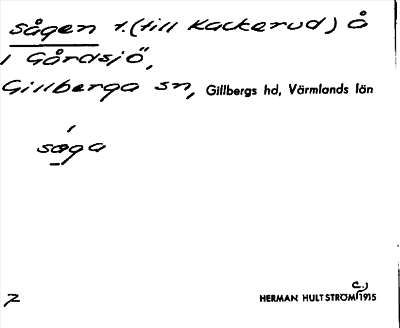 sågen t. (till Kackerud) Å
i Gårdsjö,
Gillberga sn, Gillbergs hd, Värmlands län
söga
7
HERMAN HULTSTRÖM (c.) 1915